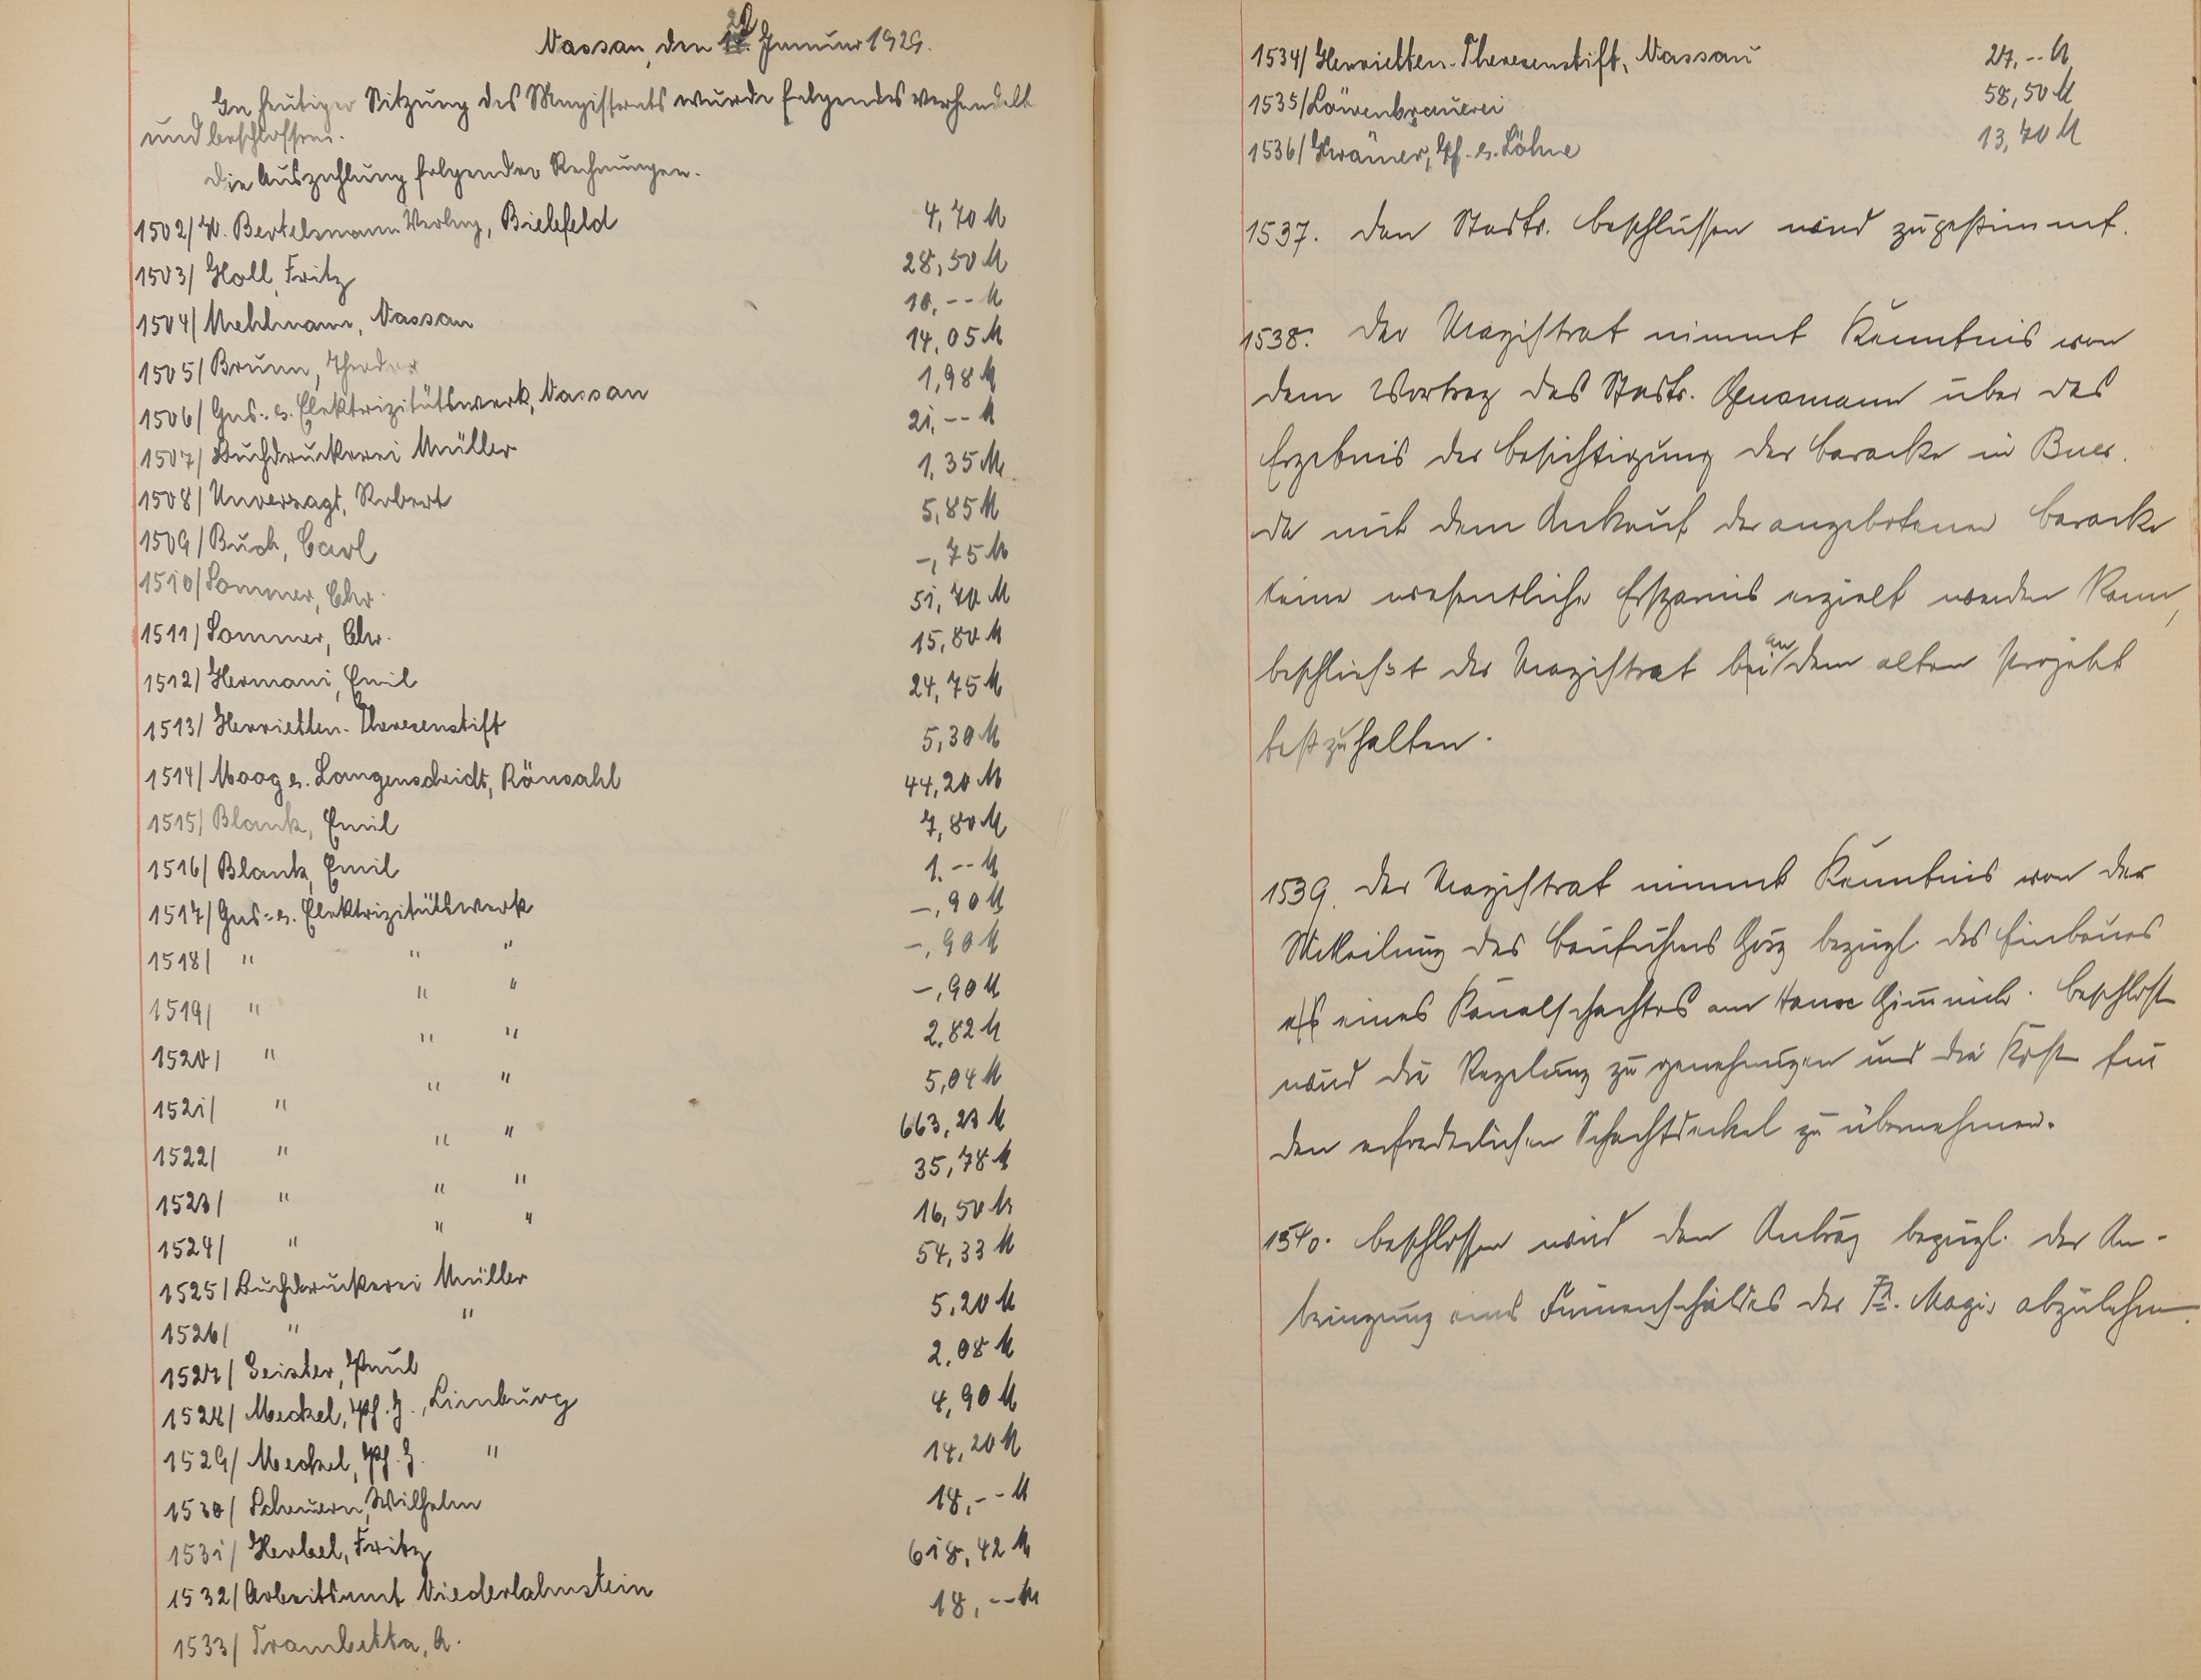 Nassau, den 22. Januar 1929.
In heutiger Sitzung des Magistrats wurde folgendes verhandelt
und beschlossen.
Die Auszahlung folgender Rechnungen.
1502/ W. Bertelsmann Verlag, Bielefeld 4,70 M
1503/ Holl, Fritz 28,50 M
1504/ Mehlmann, Nassau 10,-- M
1505/ Brunn, Theodor 14,05 M
1506/ Gas- u. Elektrizitätswerk, Nassau 1,98 M
1507/ Buchdruckerei Müller 21,-- M
1508/ Unverzagt, Robert 1,35 M
1509/ Buch, Carl 5,85 M
1510/ Sommer, Chr. -,75 M
1511/ Sommer, Chr. 51,70 M
1512/ Hermani, Emil 15,80 M
1513/ Henrietten-Theresenstift 24,75 M
1514/ Moog u. Langenscheidt, Rönsahl 5,30 M
1515/ Blank, Emil 44,20 M
1516/ Blank, Emil 7,80 M
1517/ Gas- u. Elektrizitätswerk 1.-- M
1518/ " " " -,90 M
1519/ " " " -,90 M
1520/ " " " -,90 M
1521/ " " " 2,82 M
1522/ " " " 5,04 M
1523/ " " " 663,23 M
1524/ " " " 35,78 M
1525/ Buchdruckerei Müller 16,50 M
1526/ " " 54,33 M
1527/ Geister, Paul 5,20 M
1528/ Meckel, Ph. J., Limburg 2,08 M
1529/ Meckel, Ph. J. " 4,90 M
1530/ Scheuern, Wilhelm 14,20 M
1531/ Herbel, Fritz 18,-- M
1532/ Arbeitsamt Niederlahnstein 618,42 M
1533/ Trombetta, A. 18,-- M
1534/ Henrietten-Theresenstift, Nassau 27,-- M
1535/ Löwenbrauerei 58,50 M
1536/ Krämer, Ph. u. Söhne 13,70 M
1537. Den Stadtv. beschlüssen wird zugestimmt.
1538. Der Magistrat nimmt Kenntnis von
dem Vortrag des Stadtv. über das
Ergebnis der Besichtigung der Baracke in Buer.
Da mit dem Ankauf der angebotenen Baracke
keine wesentliche Ersparnis erzielt werden kann,
beschließt der Magistrat bei an dem alten Projekt
festzuhalten.
1539. Der Magistrat nimmt Kenntnis von der
Mitteilung des Bauführers bezügl. des Einbaues
eines Kanalschachtes am Hause. Beschlossen
wird die Regelung zu genehmigen und die Kosten für
den erforderlichen Schachtdeckel zu übernehmen.
1540. Beschlossen wird den Antrag bezügl. der An-
bringung eines Firmenschildes der Fa. Magis abzulehnen.